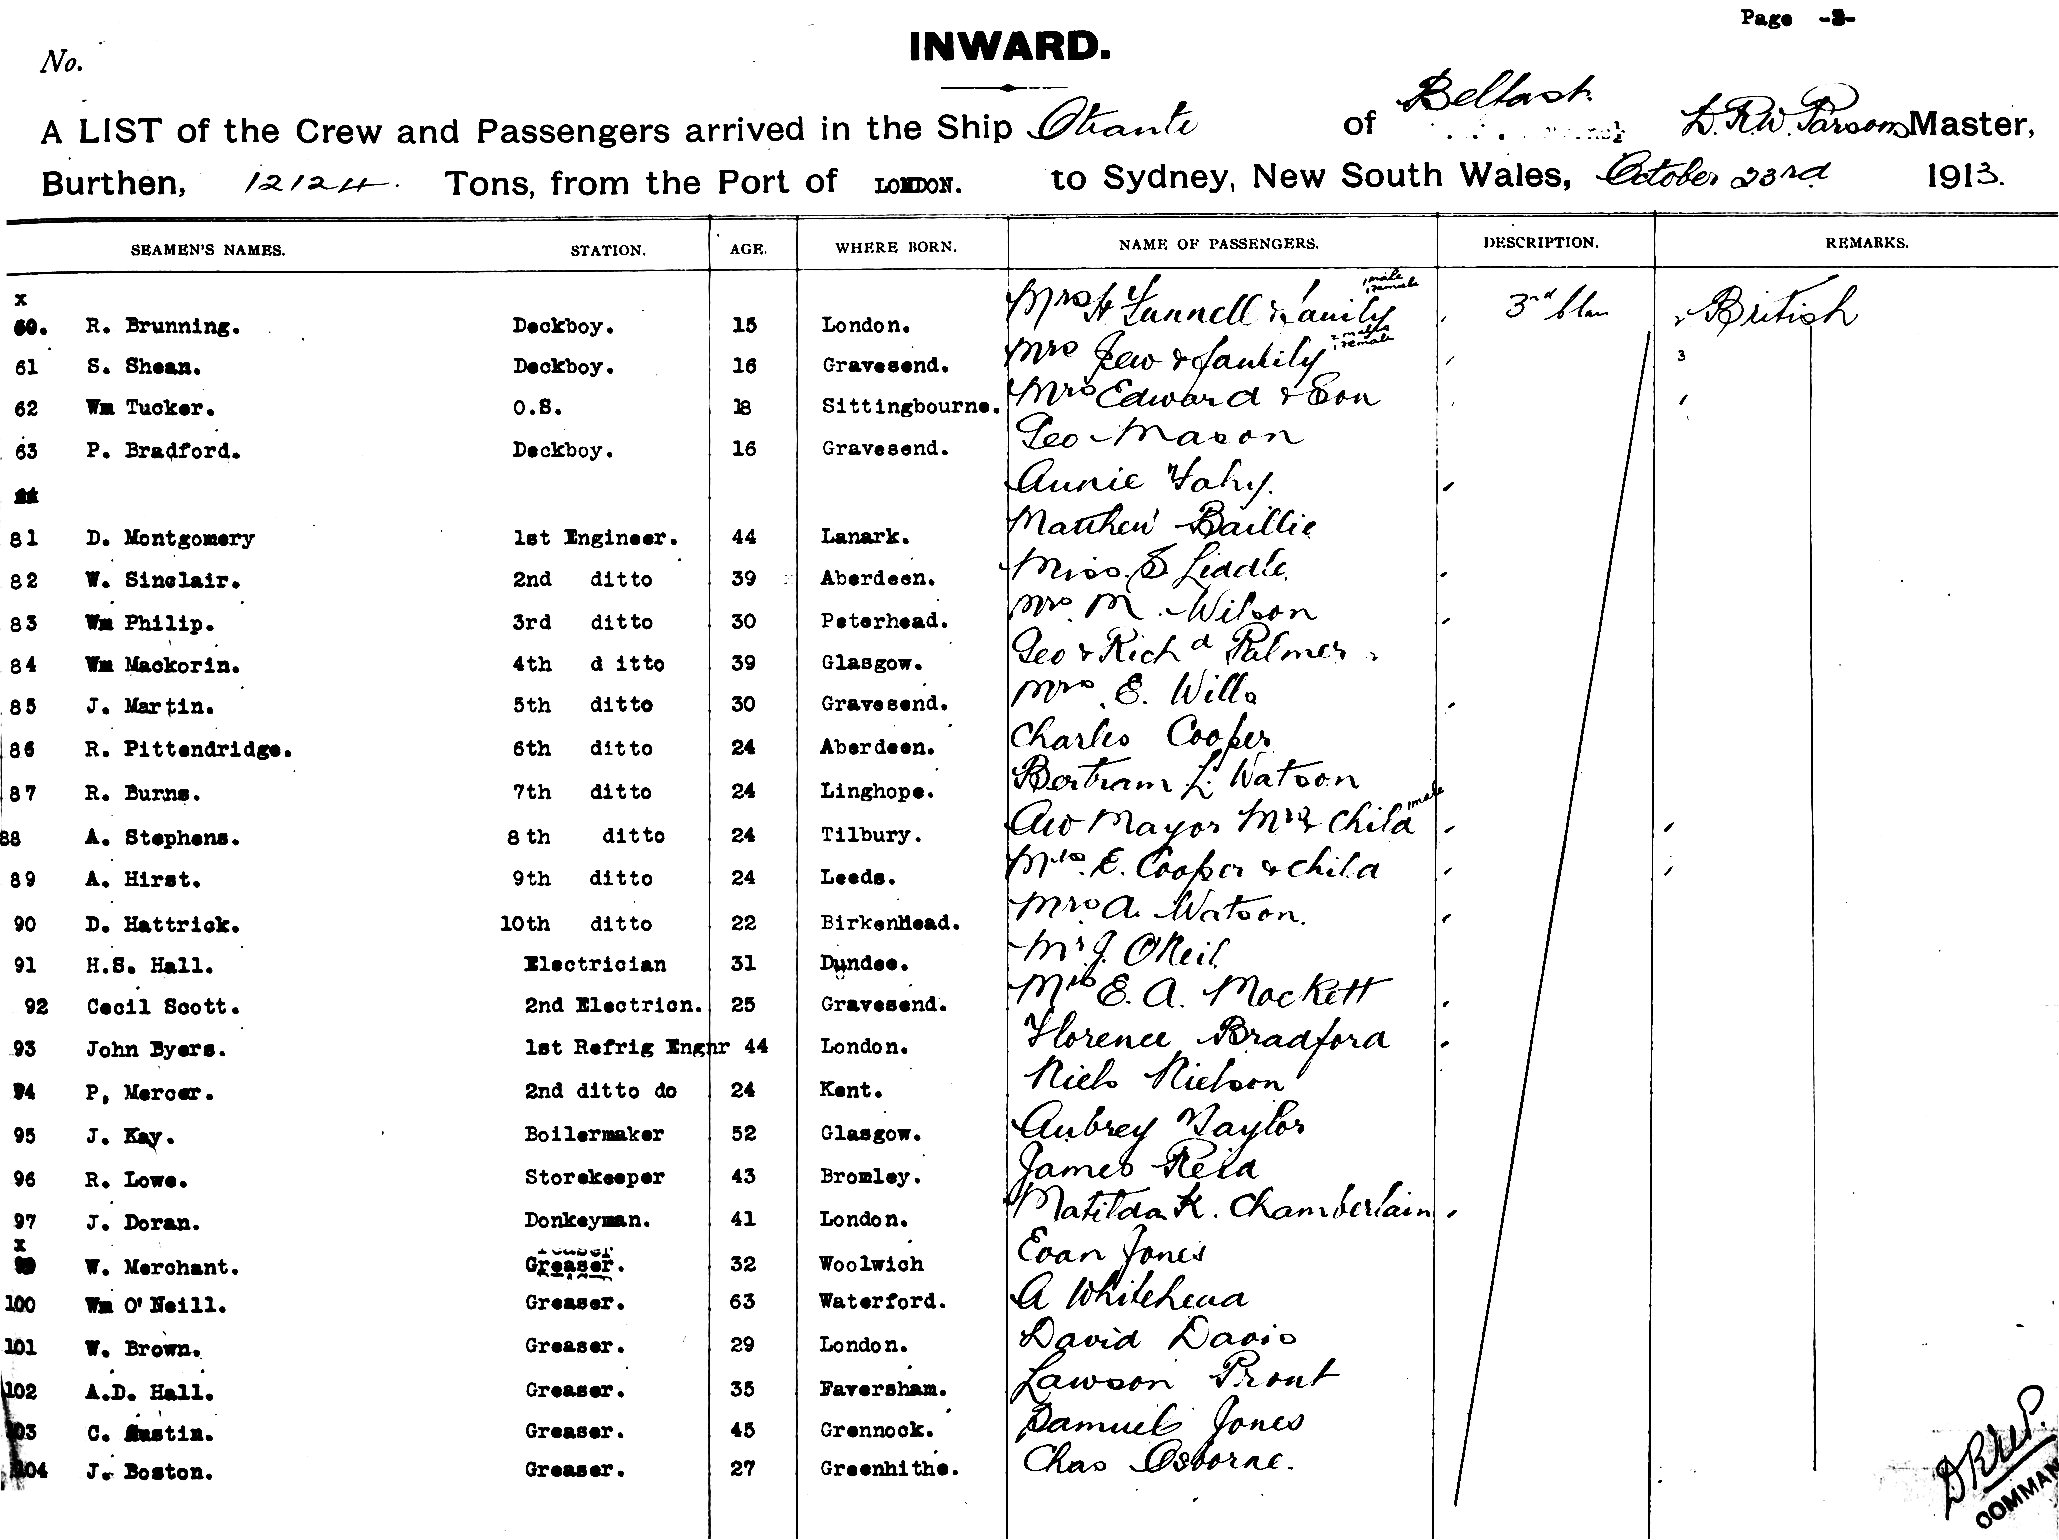 Page
No.
INWARD.
A LIST of the Crew and Passengers arrived in the Ship Otranto of Belfast D.R.W. Parsons Master,
Burthen, 12124. Tons, from the Port of LONDON. to Sydney, New South Wales, October 23rd 1913.
SEAMEN'S NAMES. STATION. AGE. WHERE BORN. NAME OF PASSENGERS. DESCRIPTION. REMARKS.
x male
female
60. R. Brunning. Deckboy. 15 London. Mrs H & family 3rd Clas British
males
female
61 S. Shean. Deckboy. 16 Gravesend. Mrs Jew & family 3
62 Wm Tucker. O.S. 18 Sittingbourne. Mrs Edward & Son
63 P. Bradford. Deckboy. 16 Gravesend. Geo Mason
Annie Fahy.
81 D. Montgomery 1st Engineer. 44 Lanark. Matthew Baillie
82 W. Sinclair. 2nd ditto 39 Aberdeen. Miss S Liddle.
83 Wm Philip. 3rd ditto 30 Peterhead. Mrs. M. Wilson
84 Wm Mackorin. 4th d itto 39 Glasgow. Geo & Richd Palmer
85 J. Martin. 5th ditto 30 Gravesend. Mrs. E. Wills
86 R. Pittendridge. 6th ditto 24 Aberdeen. Charles Cooper
87 R. Burns. 7th ditto 24 Linghope. Bertram L. Watson
male
88 A. Stephens. 8th ditto 24 Tilbury. Mayor Mrs & Child
89 A. Hirst. 9th ditto 24 Leeds. Mrs. E. Cooper & child
90 D. Hattrick. 10th ditto 22 BirkenHead. Mrs A. Watson.
91 H.S. Hall. Electrician 31 Dundee. Mr J. O'Neil
92 Cecil Scott. 2nd Electricn. 25 Gravesend. Mrs E. A. Mockett
93 John Byers. 1st Refrig Engnr 44 London. Florence Bradford
94 P, Mercer. 2nd ditto do 24 Kent. Niels Nielson
95 J. Kay. Boilermaker 52 Glasgow. Aubrey Taylor
96 R. Lowe. Storekeeper 43 Bromley. James Reid
97 J. Doran. Donkeyman. 41 London. Matilda K. Chamberlain
x
W. Merchant. Greaser. 32 Woolwich Evan Jones
100 Wm O'Neill. Greaser. 63 Waterford. A Whitehead
101 W. Brown. Greaser. 29 London. David Davis
102 A.D. Hall. Greaser. 35 Faversham. Lawson Prout
103 C. Austin. Greaser. 45 Grennock. Samuel Jones
104 J. Boston. Greaser. 27 Greenhithe. Chas Osborne.
D.R.W.P.
COMMAN